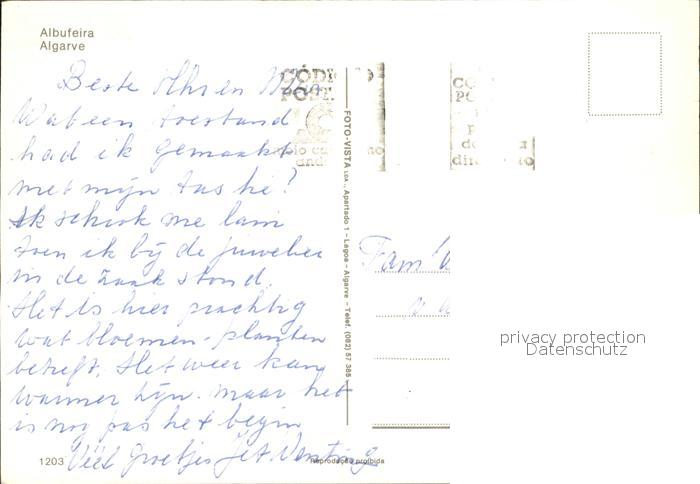 Albufeira
Algarve
Beste
Wat een toestand
had ik gemaakt
met mijn tas hé?
Ik schrok me lam
toen ik bij de juwelier
in de zaak stond.
Het is hier prachtig
wat bloemen - planten
betreft. Het weer kan
warmer zijn. maar het
is nog pas het begin
Veel Groetjes Jet
1203
Reprodução proibida
FOTO-VISTA LDA., Apartado 1 - Lagoa - Algarve - Telef. (082) 57 365
CÓDI
POS
CÓ
PO
Fam
privacy protection
Datenschutz